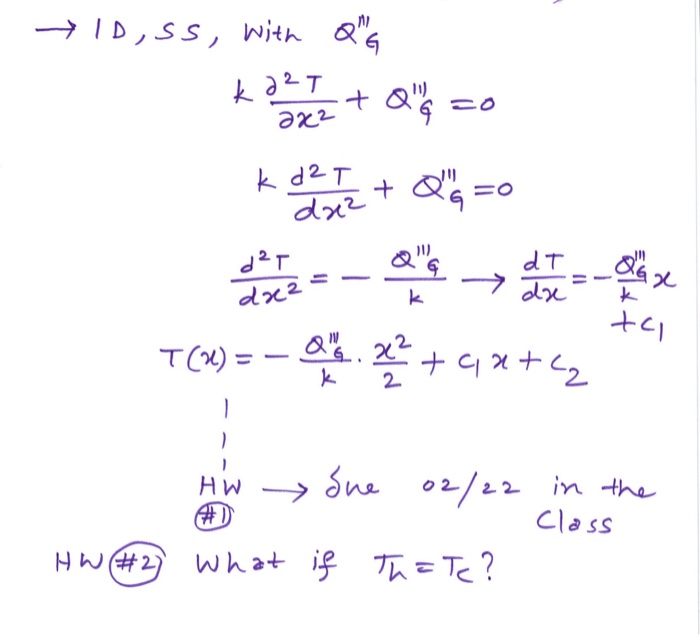 → 1D, SS, With Q'''G
k ∂²T/∂x² + Q'''G = 0
k d²T/dx² + Q'''G = 0
d²T/dx² = - Q'''G/k → dT/dx = - Q'''G/k x + C1
T(x) = - Q'''G/k . x²/2 + C1 x + C2
HW → due 02/22 in the
#1 Class
HW #2) What if Th = Tc?